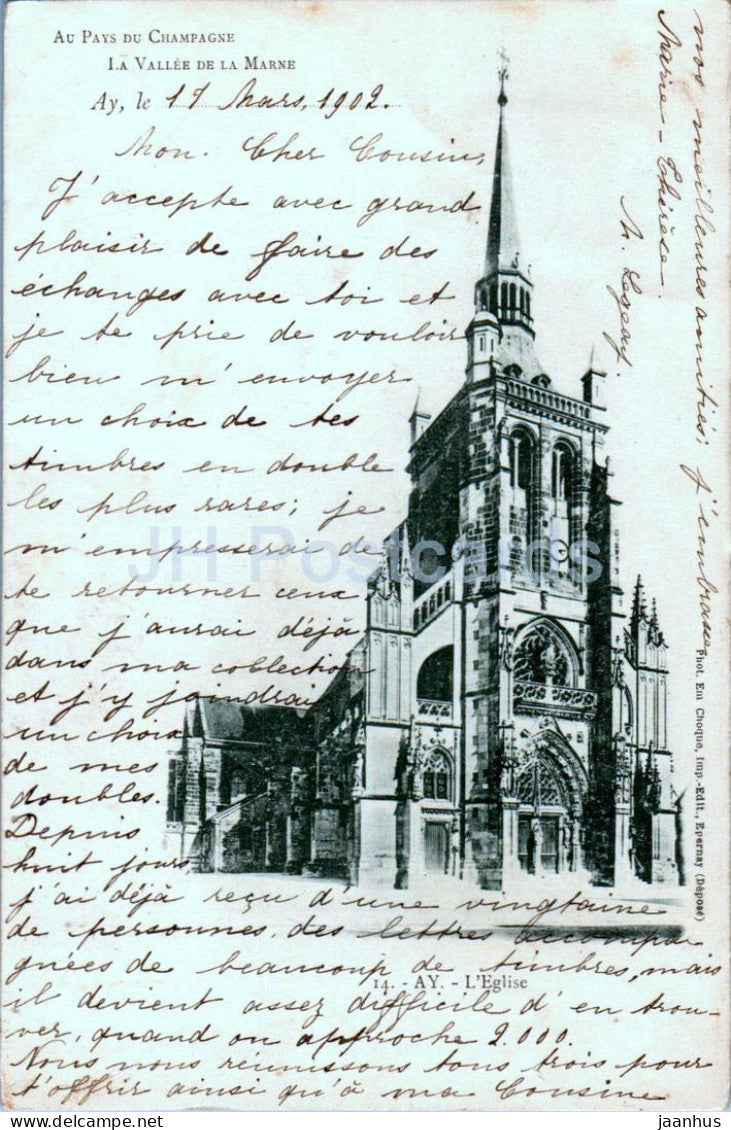 AU PAYS DU CHAMPAGNE
LA VALLÉE DE LA MARNE
Ay, le 17 Mars, 1902.
Mon. Cher Cousin,
J'accepte avec grand
plaisir de faire des
échanges avec toi et
je te prie de vouloir
bien m'envoyer
un choix de tes
timbres en double
les plus rares; je
m'empresserai de
te retourner ceux
que j'aurai déjà
dans ma collection
et j'y joindrai
un choix
de mes
doubles.
Depuis
huit jours
j'ai déjà reçu d'une vingtaine
de personnes, des lettres accompa-
gnées de beaucoup de timbres, mais
il devient assez difficile d'en trou-
ver, quand on approche 2.000.
Nous nous réunissons tous trois pour
t'offrir ainsi qu'à ma Cousine
nos meilleures amitiés; j'embrasse
Marie-Thérèse.
14. - AY. - L'Eglise
Phot. Em Choque, imp.-Edit., Epernay (Déposé)
JH Postcards
jaanhus @ www.delcampe.net